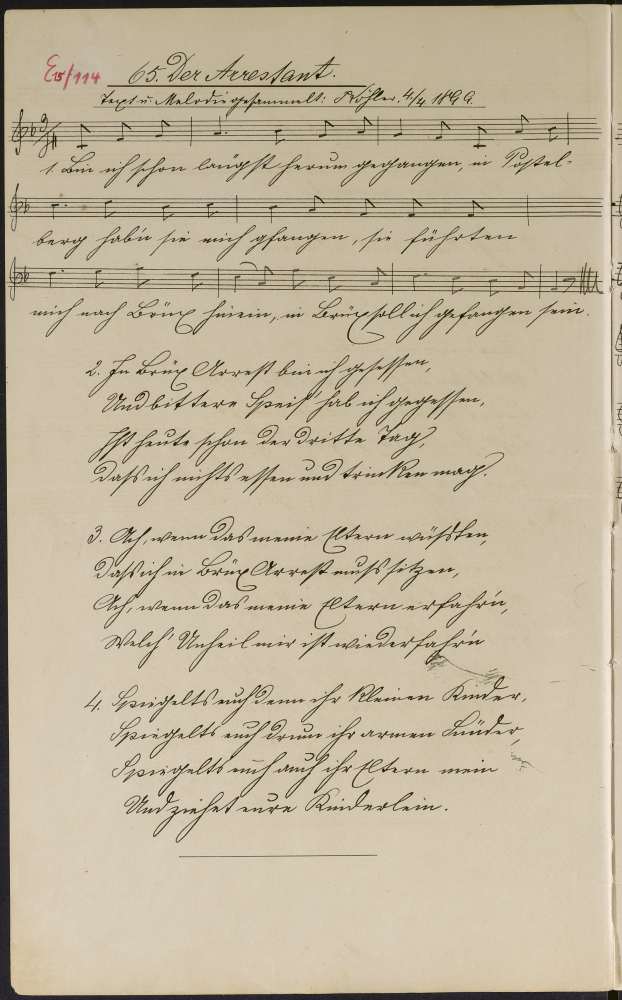 E15/114 65. Der Arrestant.
Text u. Melodie gesammelt: Köhler. 4/4 1899.
1. Bin ich schon längst herum gegangen, in Postel-
berg hab'n sie mich gfangen, sie führten
mich nach Brüx hinein, in Brüx soll ich gefangen sein.
2. In Brüx Arrest bin ich gesessen,
Und bittere Speis' hab ich gegessen,
Ist heute schon der dritte Tag,
dass ich nichts essen und trinken mag.
3. Ach, wenn das meine Eltern wüssten,
dass ich in Brüx Arrest muss sitzen,
Ach, wenn das meine Eltern erfahr'n,
Welch' Unheil mir ist wiederfahr'n
4. Spiegelts euch denn ihr kleinen Kinder,
Spiegelts euch drum ihr armen Sünder,
Spiegelts euch auch ihr Eltern mein
Und ziehet eure Kinderlein.